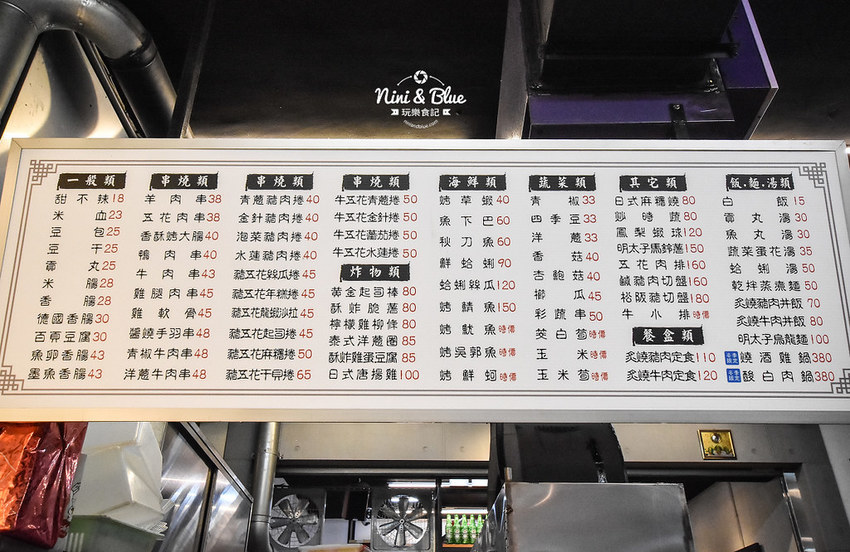 Nini & Blue
玩樂食記
一般類
甜不辣18
米血23
豆包25
豆干25
貢丸25
米腸28
香腸28
德國香腸30
百頁豆腐30
魚卵香腸43
墨魚香腸43
串燒類
羊肉串38
五花肉串38
香酥烤大腸40
鴨肉串40
牛肉串43
雞腿肉串45
雞軟骨45
醬燒手羽串48
青椒牛肉串48
洋蔥牛肉串48
串燒類
青蔥豬肉捲40
金針豬肉捲40
泡菜豬肉捲40
水蓮豬肉捲40
豬五花絲瓜捲45
豬五花年糕捲45
豬五花龍蝦沙拉45
豬五花起司捲45
豬五花麻糬捲50
豬五花干貝捲65
牛五花青蔥捲50
牛五花金針捲50
牛五花蕃茄捲50
牛五花水蓮捲50
炸物類
黃金起司棒80
酥炸脆薏80
檸檬雞柳條80
泰式洋蔥圈85
酥炸雞蛋豆腐85
日式唐揚雞100
海鮮類
烤草蝦40
魚下巴60
秋刀魚60
鮮蛤蜊90
蛤蜊絲瓜120
烤鯖魚150
烤魷魚時價
烤吳郭魚時價
烤鮮蚵時價
蔬菜類
青椒33
四季豆33
洋蔥33
香菇40
杏鮑菇40
櫛瓜45
彩蔬串50
茭白筍時價
玉米時價
玉米筍時價
其它類
日式麻糬燒80
炒時蔬80
鳳梨蝦球120
明太子馬鈴薯150
五花肉排160
鹹豬肉切盤160
松阪豬切盤180
牛小排時價
餐盒類
炙燒豬肉定食110
炙燒牛肉定食120
飯.麵.湯類
白飯15
貢丸湯30
魚丸湯30
蔬菜蛋花湯35
蛤蜊湯50
乾拌蒸煮麵50
炙燒豬肉丼飯70
炙燒牛肉丼飯80
明太子烏龍麵100
冬季限定 燒酒雞鍋380
冬季限定 酸白肉鍋380